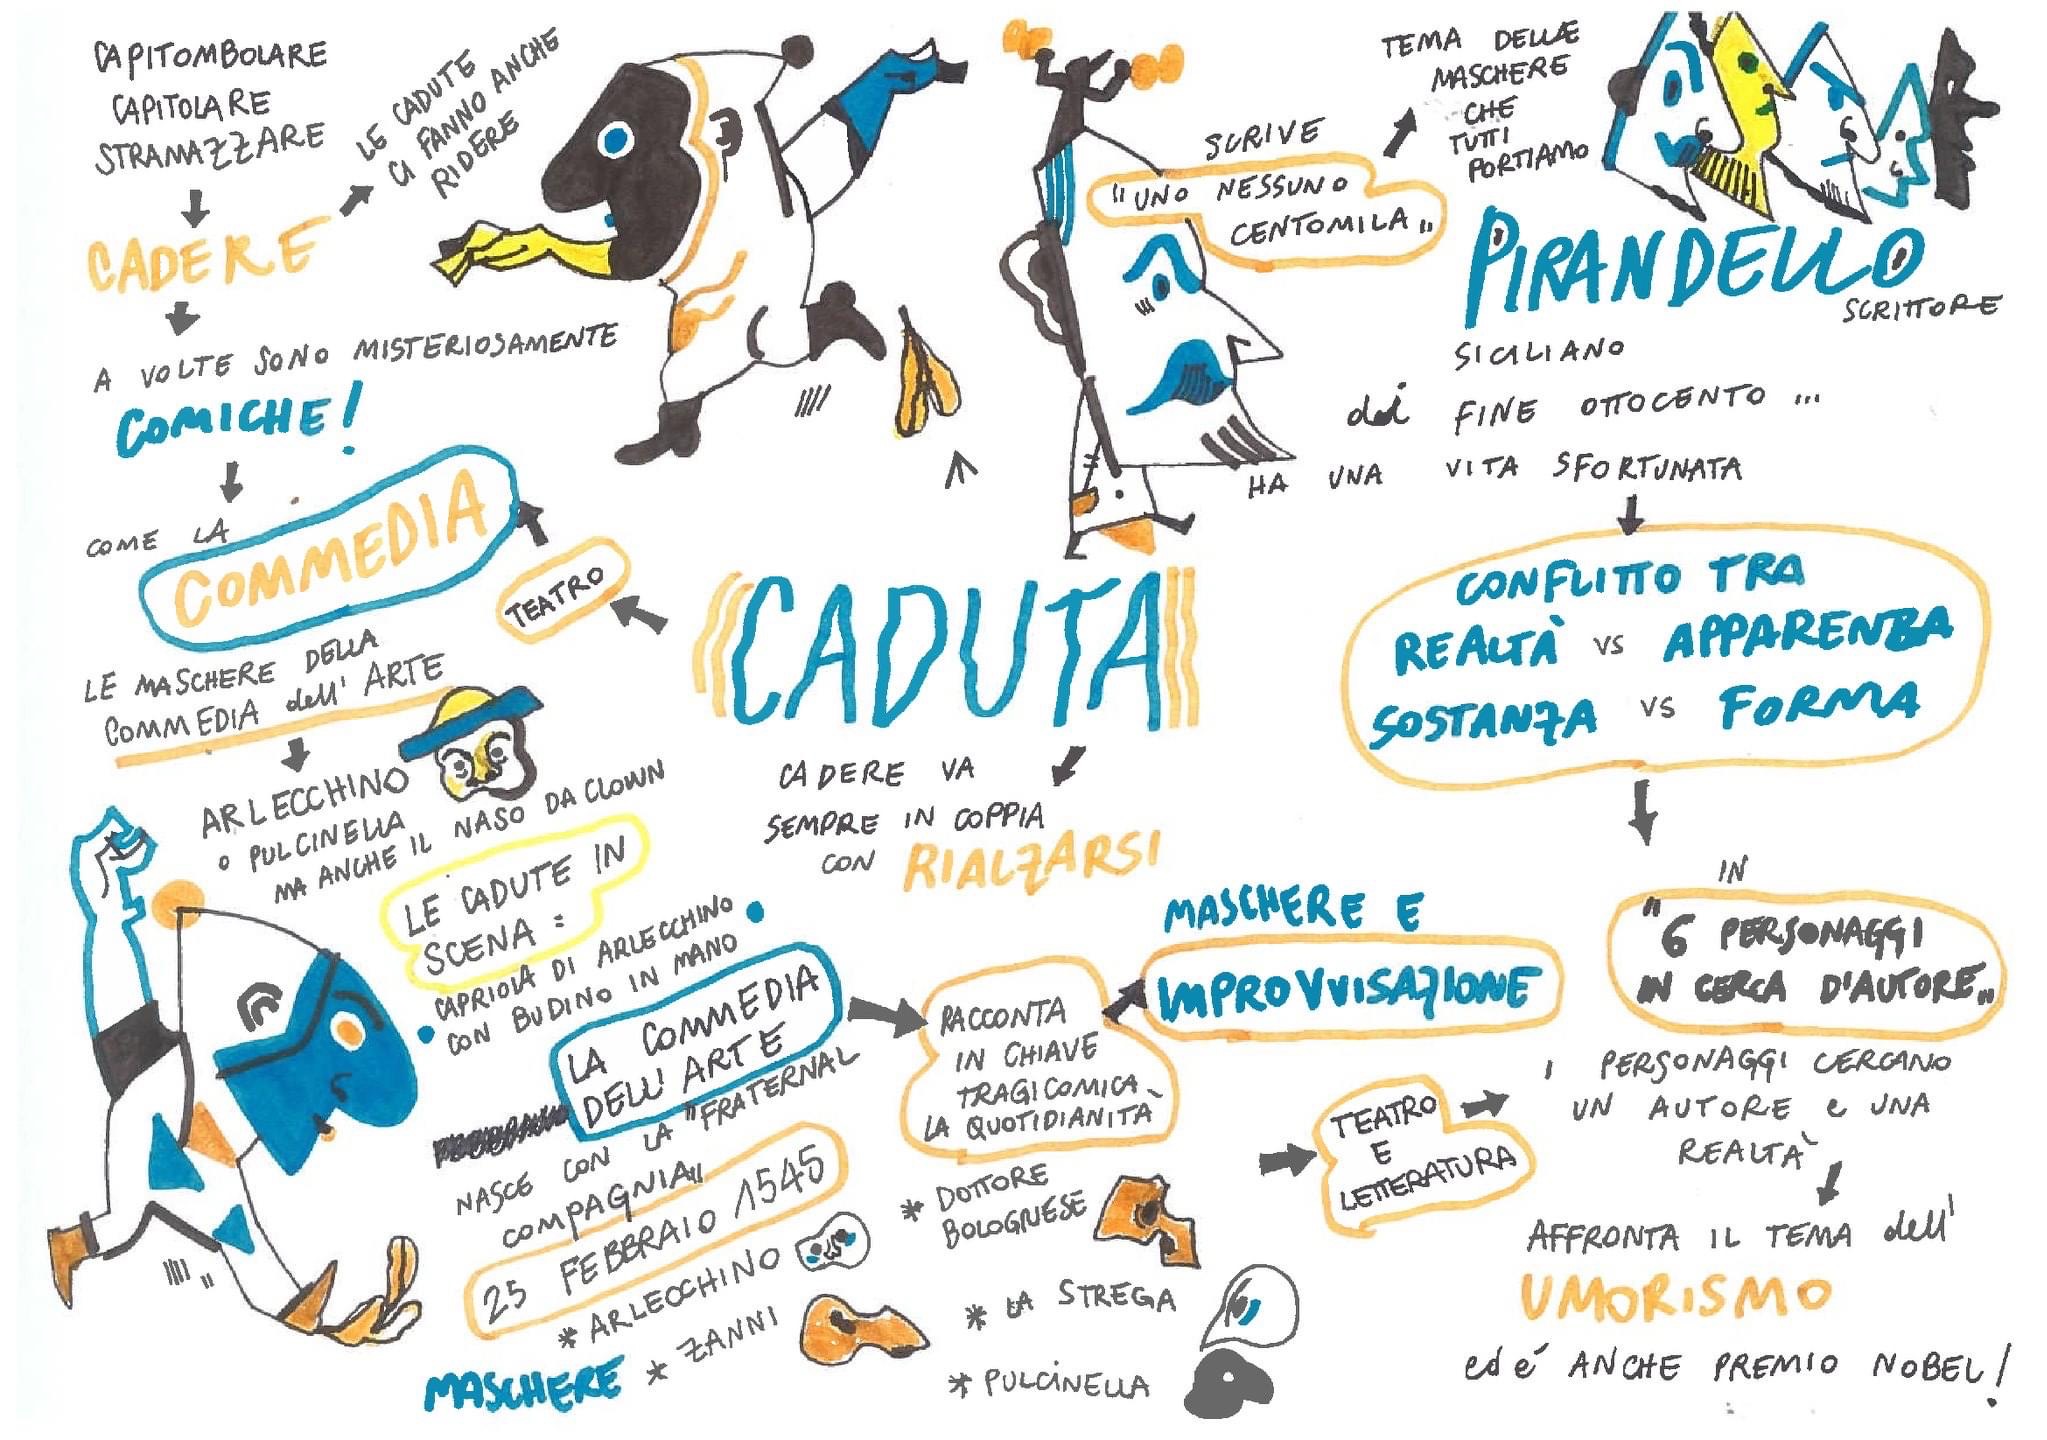 CAPITOMBOLARE
CAPITOLARE
STRAMAZZARE
CADERE
LE CADUTE
CI FANNO ANCHE
RIDERE
A VOLTE SONO MISTERIOSAMENTE
COMICHE!
COME LA
COMMEDIA
TEATRO
LE MASCHERE DELLA
COMMEDIA dell' ARTE
ARLECCHINO
O PULCINELLA
MA ANCHE IL NASO DA CLOWN
LE CADUTE IN
SCENA :
CAPRIOLA DI ARLECCHINO
CON BUDINO IN MANO
LA COMMEDIA
DELL' ARTE
NASCE CON LA "FRATERNAL
COMPAGNIA"
25 FEBBRAIO 1545
MASCHERE
* ARLECCHINO
* ZANNI
* DOTTORE
BOLOGNESE
* LA STREGA
* PULCINELLA
RACCONTA
IN CHIAVE
TRAGICOMICA
LA QUOTIDIANITÀ
MASCHERE E
IMPROVVISAZIONE
CADUTA
CADERE VA
SEMPRE IN COPPIA
CON RIALZARSI
TEATRO
E
LETTERATURA
SCRIVE
"UNO NESSUNO
CENTOMILA"
TEMA DELLE
MASCHERE
CHE
TUTTI
PORTIAMO
PIRANDELLO
SCRITTORE
SICILIANO
di FINE OTTOCENTO ...
HA UNA VITA SFORTUNATA
CONFLITTO TRA
REALTÀ VS APPARENZA
SOSTANZA VS FORMA
IN
"6 PERSONAGGI
IN CERCA D'AUTORE"
I PERSONAGGI CERCANO
UN AUTORE e UNA
REALTA'
AFFRONTA IL TEMA dell'
UMORISMO
ed e' ANCHE PREMIO NOBEL!